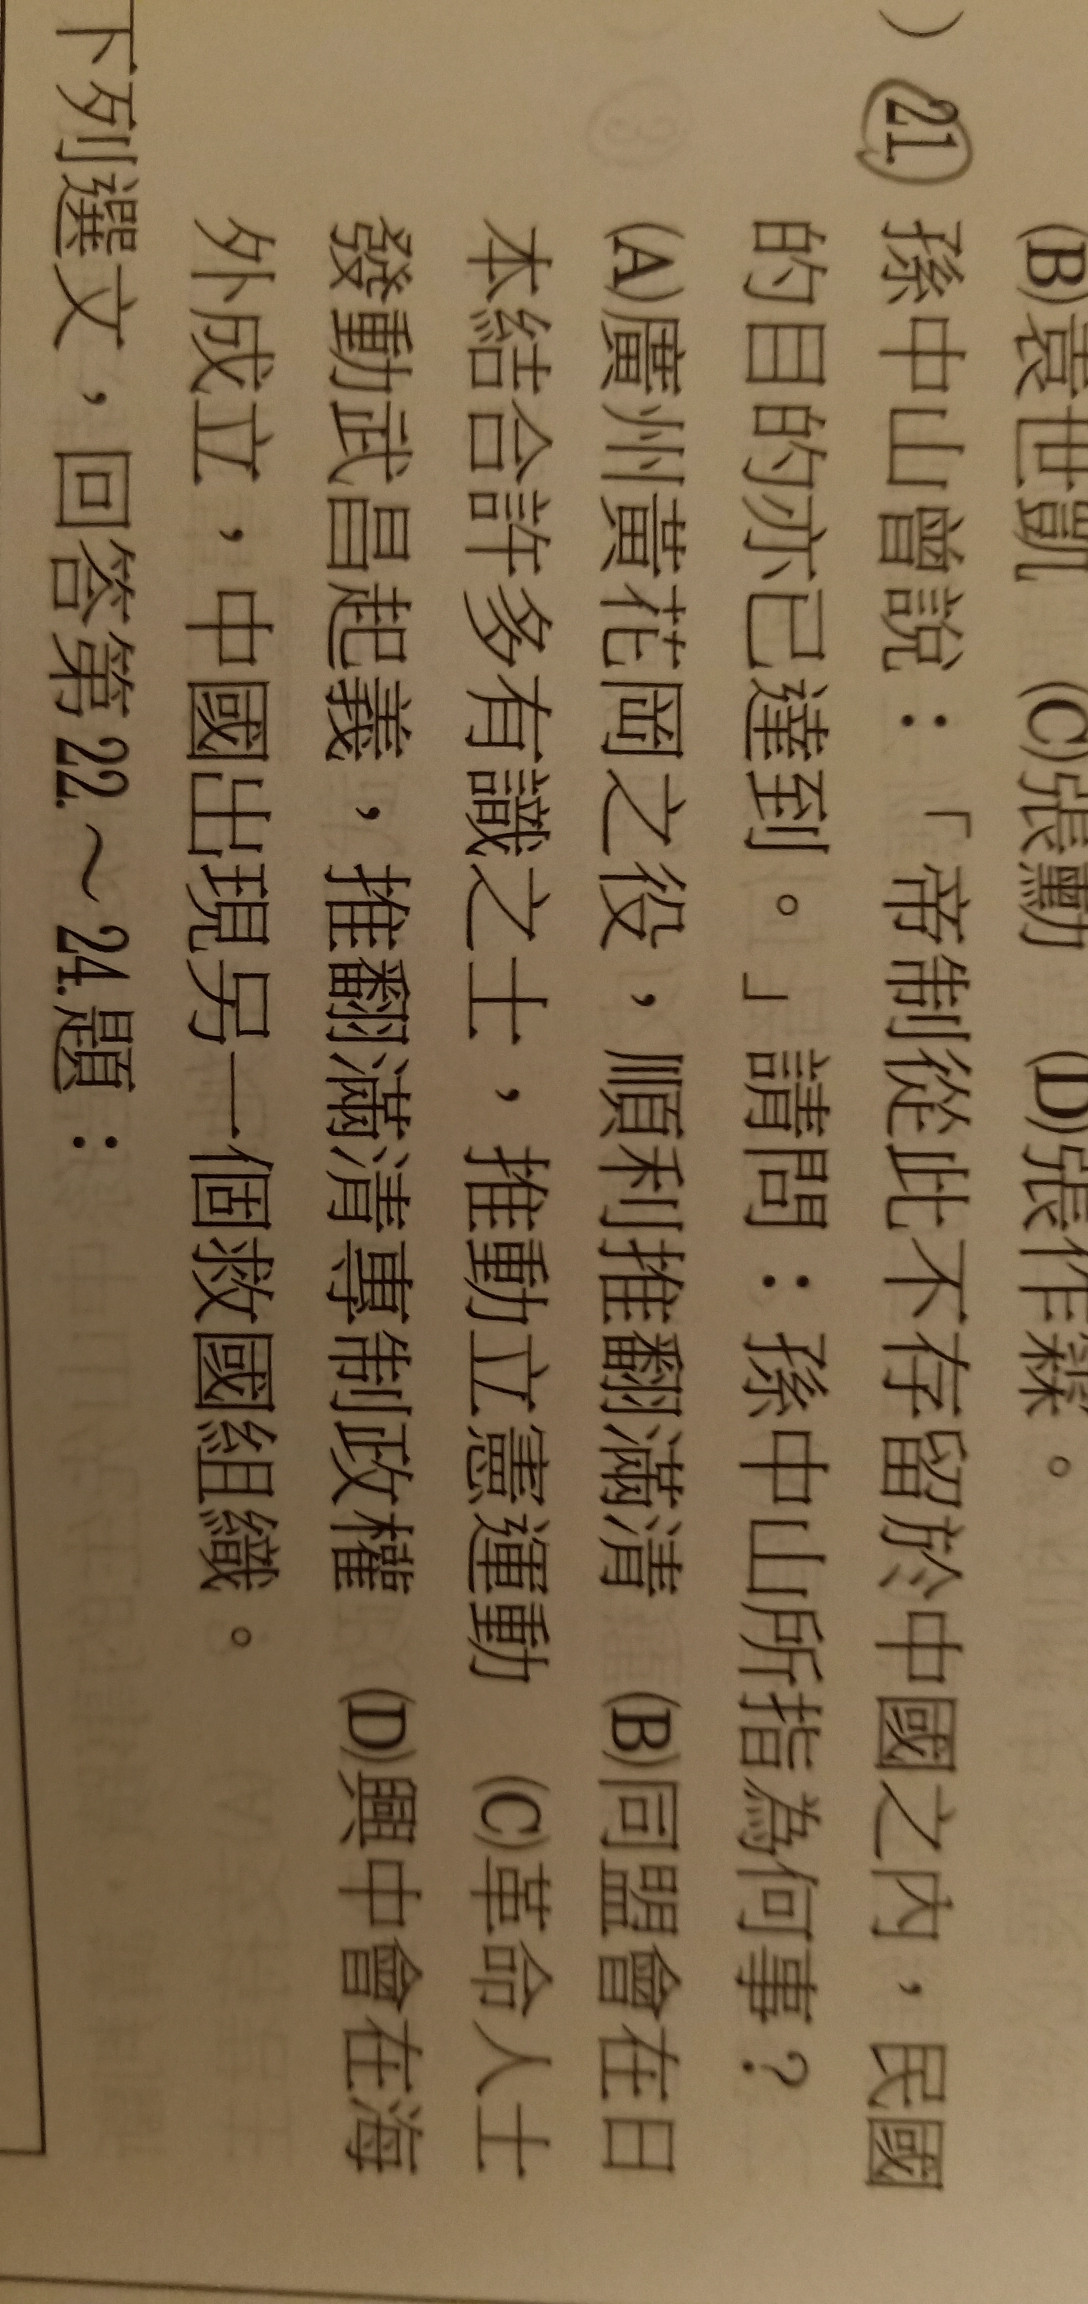 (B)袁世凱 (C)張勳 (D)張作霖。
) 21. 孫中山曾說：「帝制從此不存留於中國之內，民國
的目的亦已達到。」請問：孫中山所指為何事？
(A)廣州黃花岡之役，順利推翻滿清 (B)同盟會在日
本結合許多有識之士，推動立憲運動 (C)革命人士
發動武昌起義，推翻滿清專制政權 (D)興中會在海
外成立，中國出現另一個救國組織。
下列選文，回答第22.～24.題：